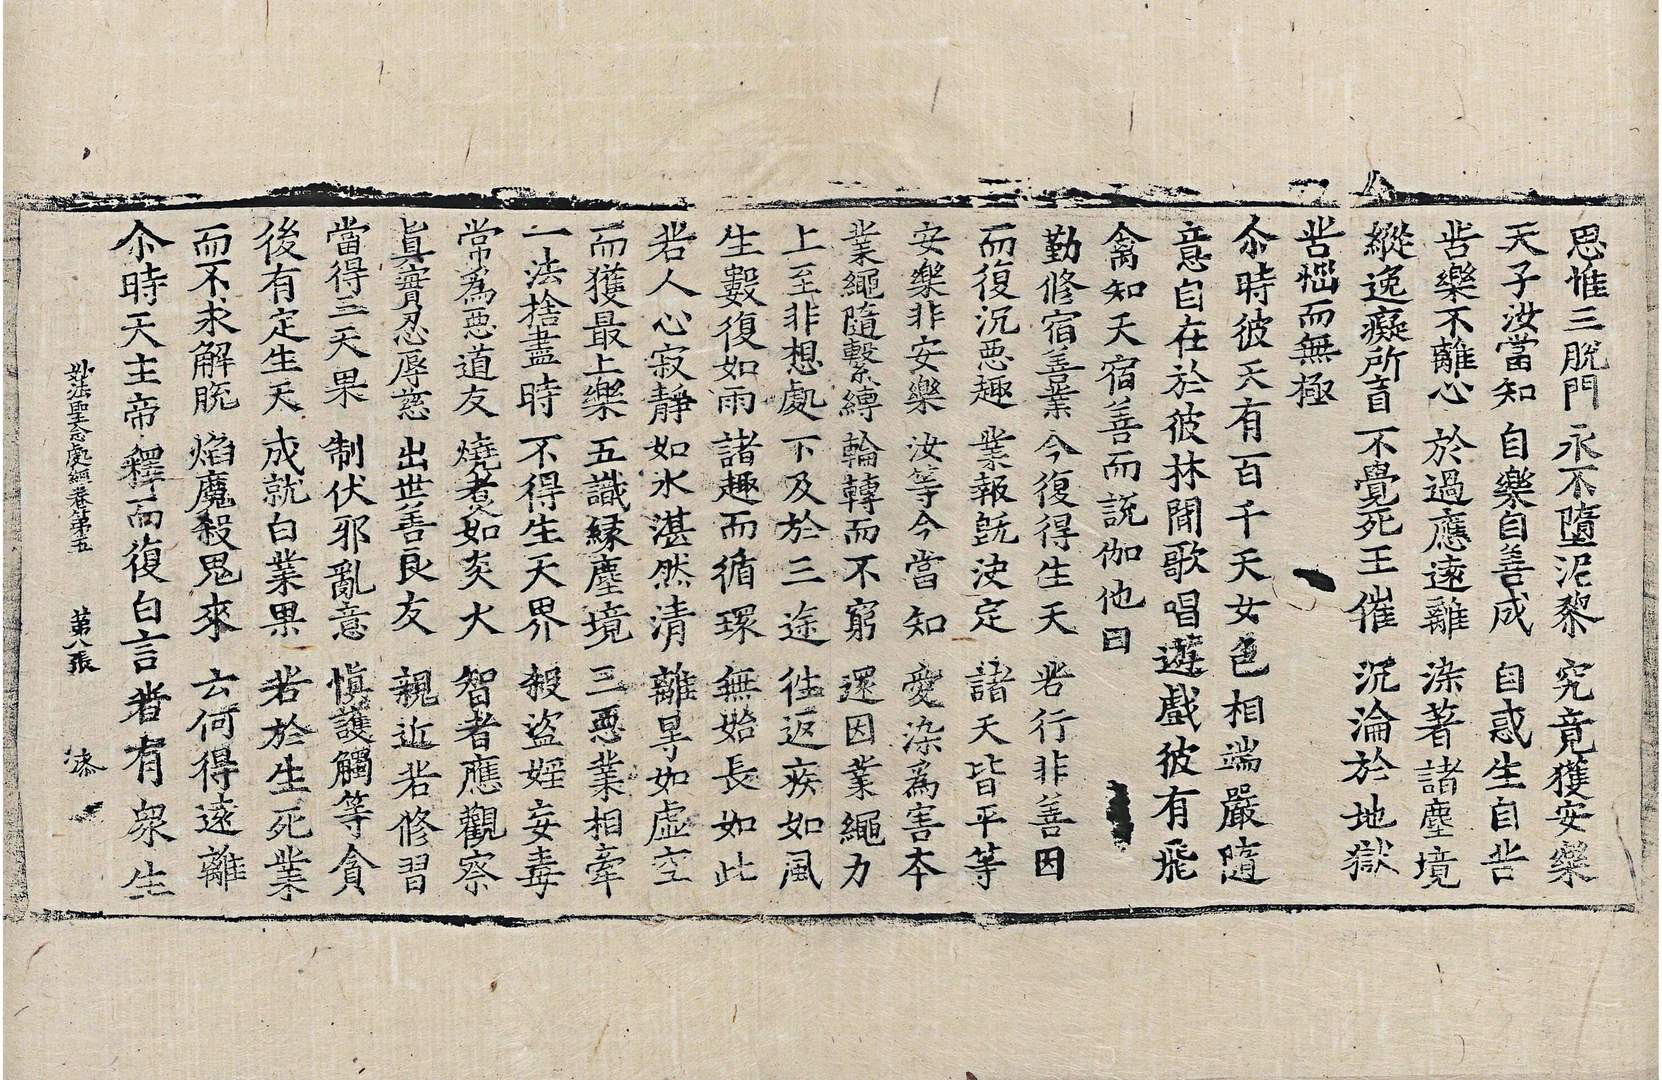 思惟三脫門 永不墮泥黎 究竟獲安樂
天子汝當知 自樂自善成 自惑生自苦
苦樂不離心 於過應遠離 染著諸塵境
縱逸癡所盲 不覺死王催 沉淪於地獄
苦惱而無極
尒時彼天有百千天女色相端嚴隨
意自在於彼林間歌唱遊戲彼有飛
禽知天宿善而說伽他曰
勤修宿善業 今復得生天 若行非善因
而復沉惡趣 業報旣決定 諸天皆平等
安樂非安樂 汝等今當知 愛染為害本
業繩隨繫縛 輪轉而不窮 還因業繩力
上至非想處 下及於三途 往返疾如風
生數復如雨 諸趣而循環 無始長如此
若人心寂靜 如水湛然清 離垢如虛空
而獲最上樂 五識緣塵境 三惡業相牽
一法捨盡時 不得生天界 殺盜婬妄毒
常為惡道友 燒煮如炎火 智者應觀察
眞實忍辱慈 出世善良友 親近若修習
當得三天果 制伏邪亂意 愼護觸等貪
後有定生天 成就白業果 若於生死業
而不求解脫 焰魔殺鬼來 云何得遠離
尒時天主帝釋而復白言若有眾生
妙法聖念處經卷第五 第八張 漆